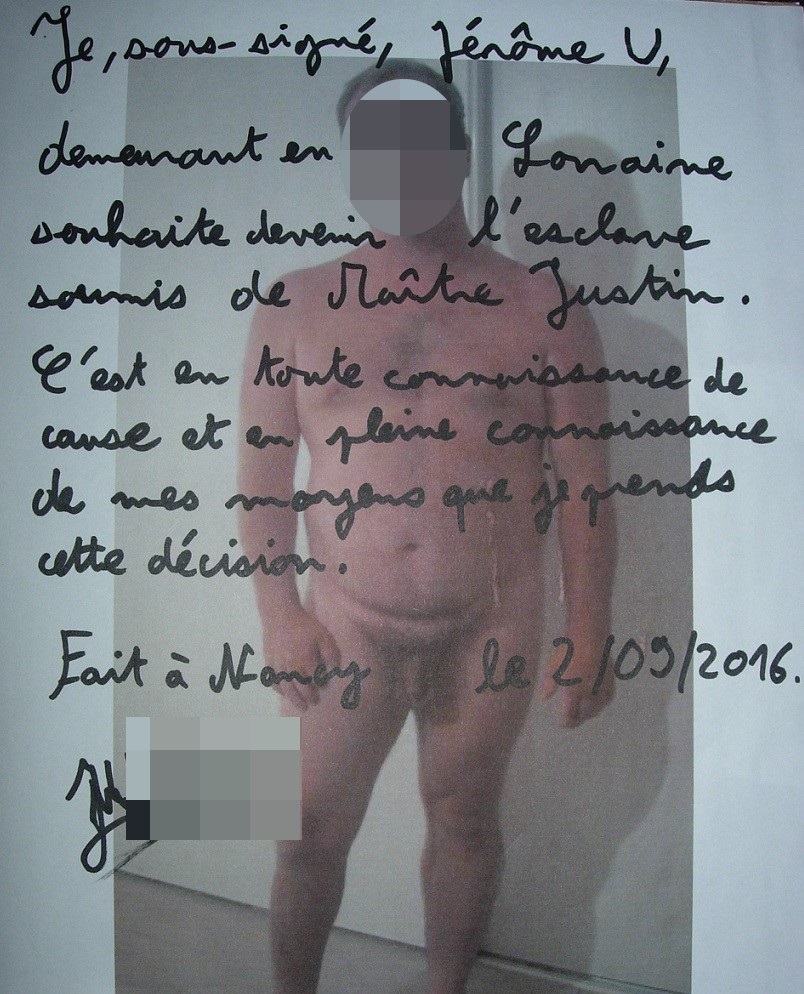 Je, sous-signé, Jérôme V,
demeurant en Lorraine
souhaite devenir l'esclave
soumis de Maître Justin.
C'est en toute connaissance de
cause et en pleine connaissance
de mes moyens que je prends
cette décision.
Fait à Nancy le 2/09/2016.